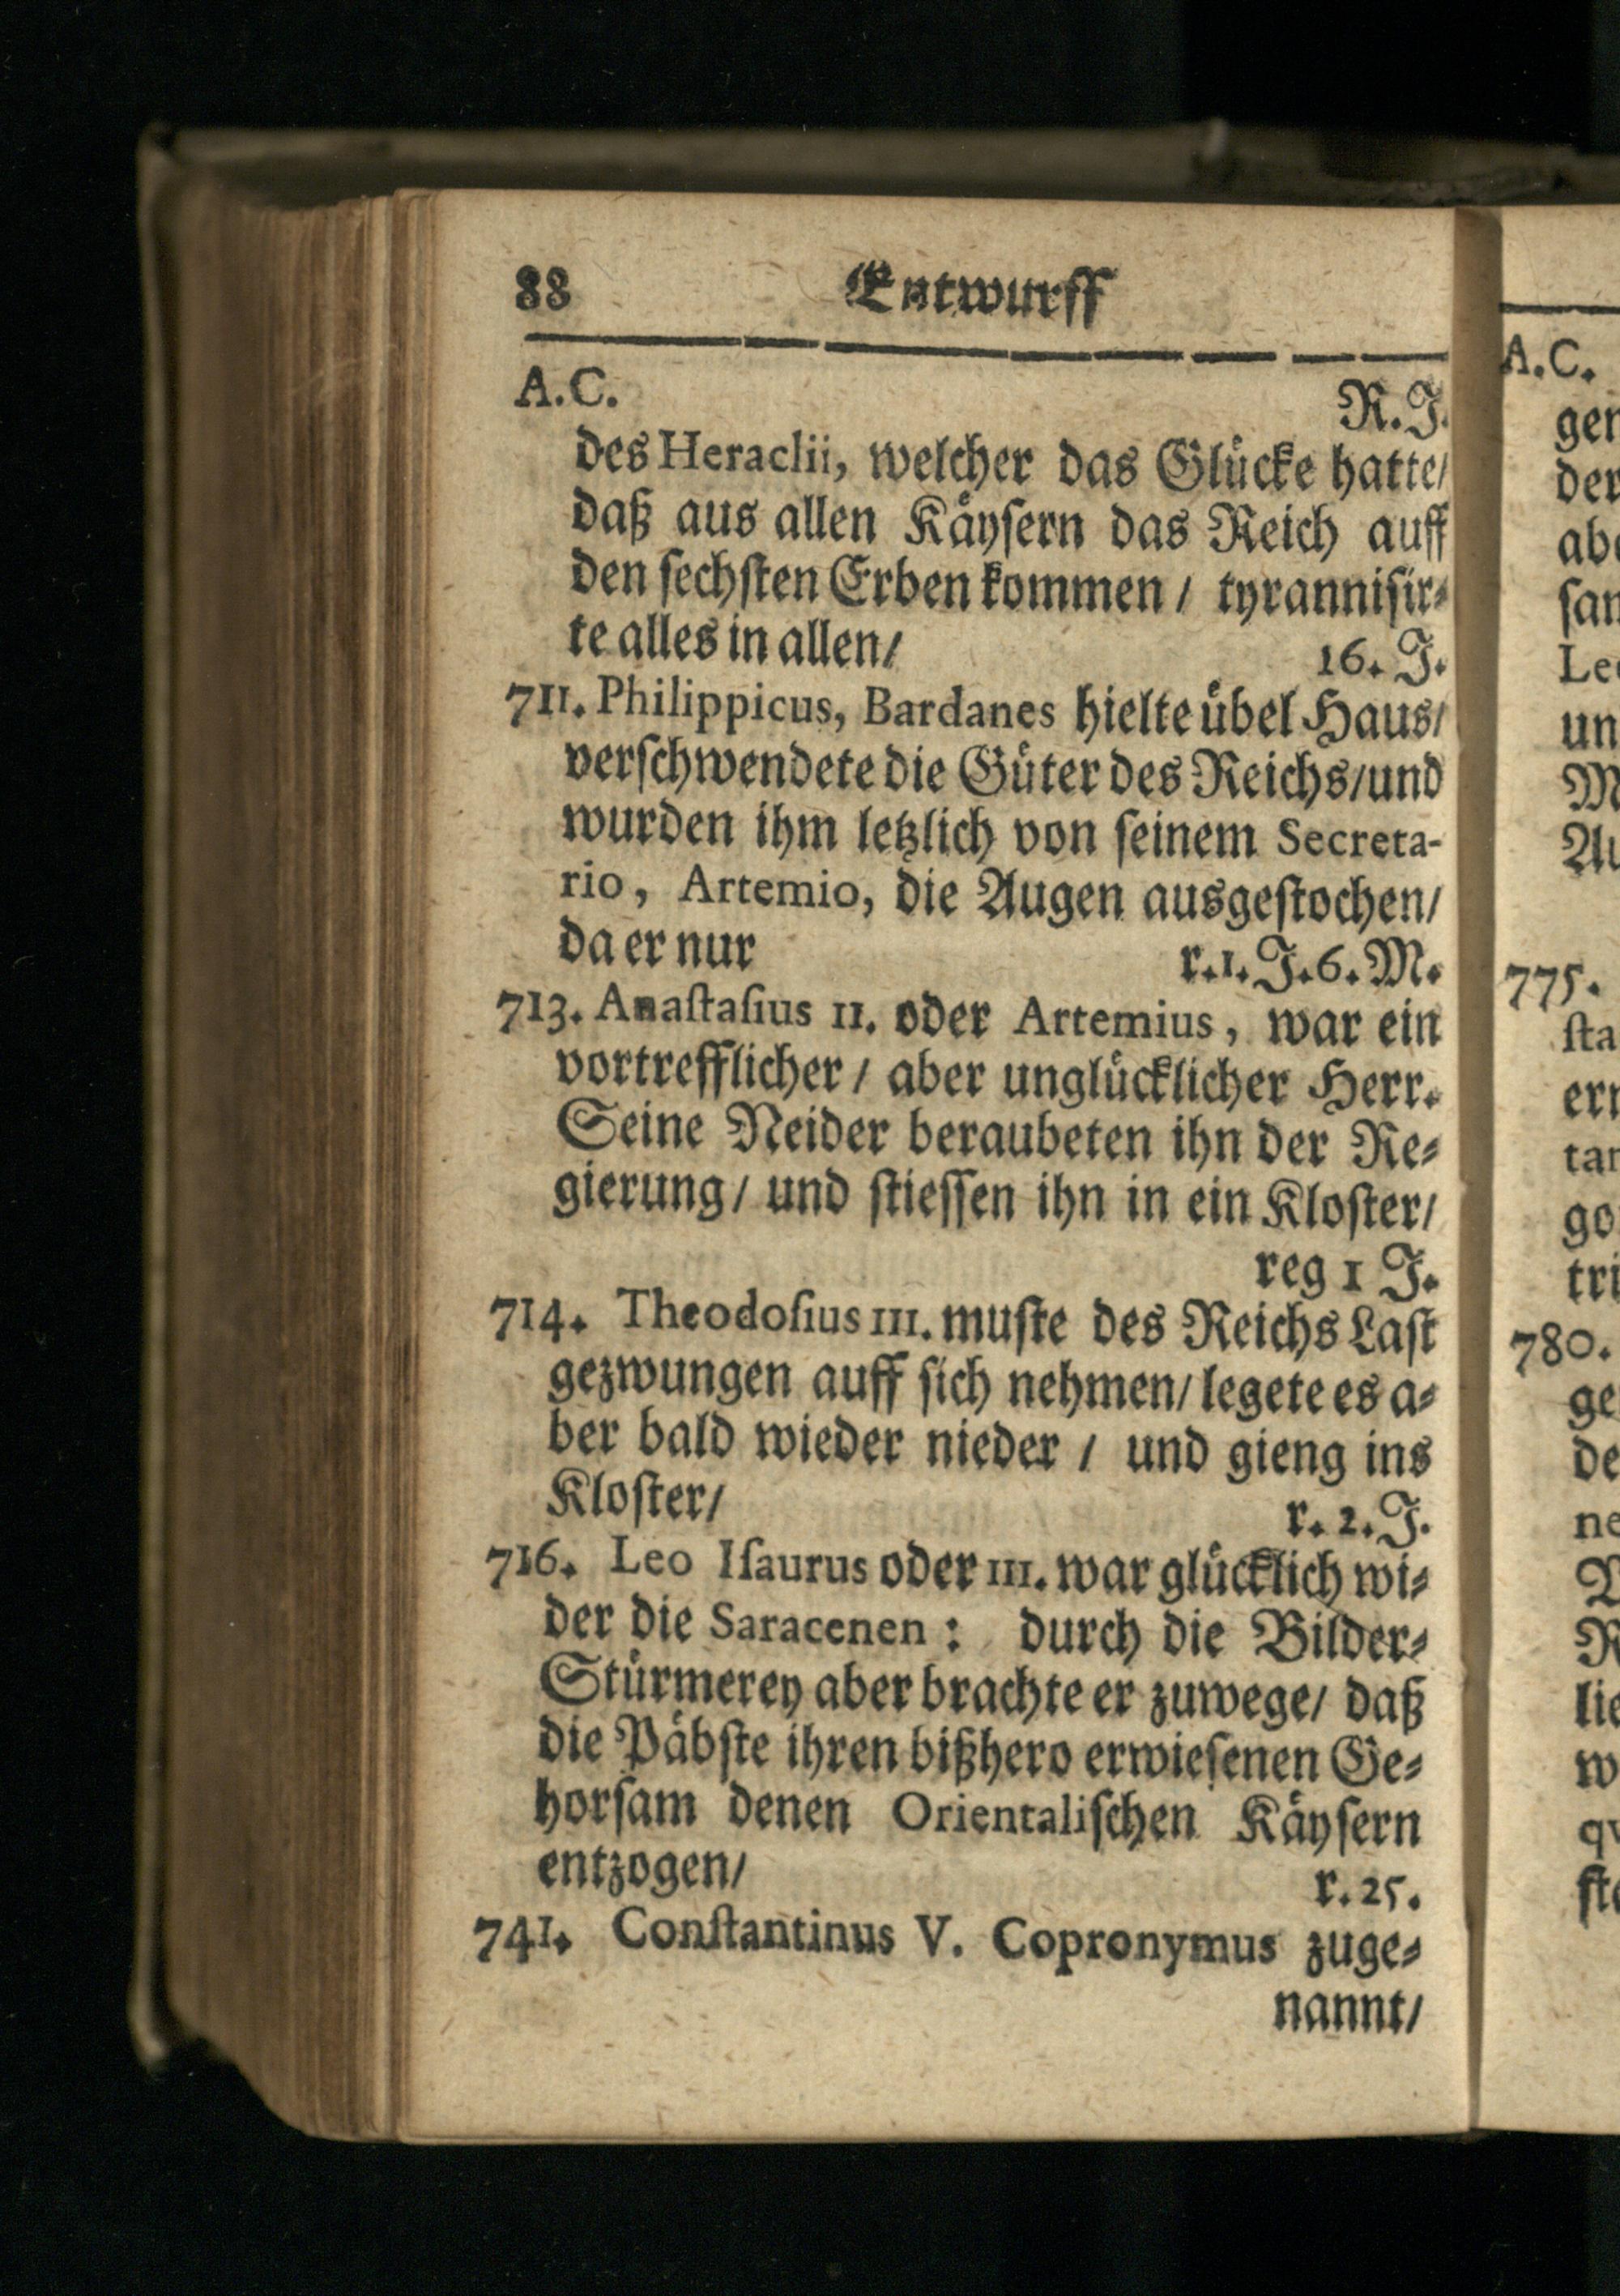 88 Entwurff
A.C. R.J.
des Heraclii, welcher das Glücke hatte/
daß aus allen Käyſern das Reich auff
den ſechſten Erben kommen / tyranniſir⸗
te alles in allen/ 16. J.
711. Philippicus, Bardanes hielte übel Haus/
verſchwendete die Güter des Reichs/und
wurden ihm letzlich von ſeinem Secreta-
rio, Artemio, die Augen ausgeſtochen/
da er nur r.1.J.6.M.
713. Anaſtaſius II. oder Artemius, war ein
vortrefflicher / aber unglücklicher Herr.
Seine Neider beraubeten ihn der Re⸗
gierung / und ſtieſſen ihn in ein Kloſter/
reg 1 J.
714. Theodoſius III. muſte des Reichs Laſt
gezwungen auff ſich nehmen/ legete es a⸗
ber bald wieder nieder / und gieng ins
Kloſter/ r. 2. J.
716. Leo Iſaurus oder III. war glücklich wi⸗
der die Saracenen : durch die Bilder⸗
Stürmerey aber brachte er zuwege/ daß
die Päbſte ihren bißhero erwieſenen Ge⸗
horſam denen Orientaliſchen Käyſern
entzogen/ r. 25.
741. Conſtantinus V. Copronymus zuge⸗
nannt/
A.C.
775.
780.